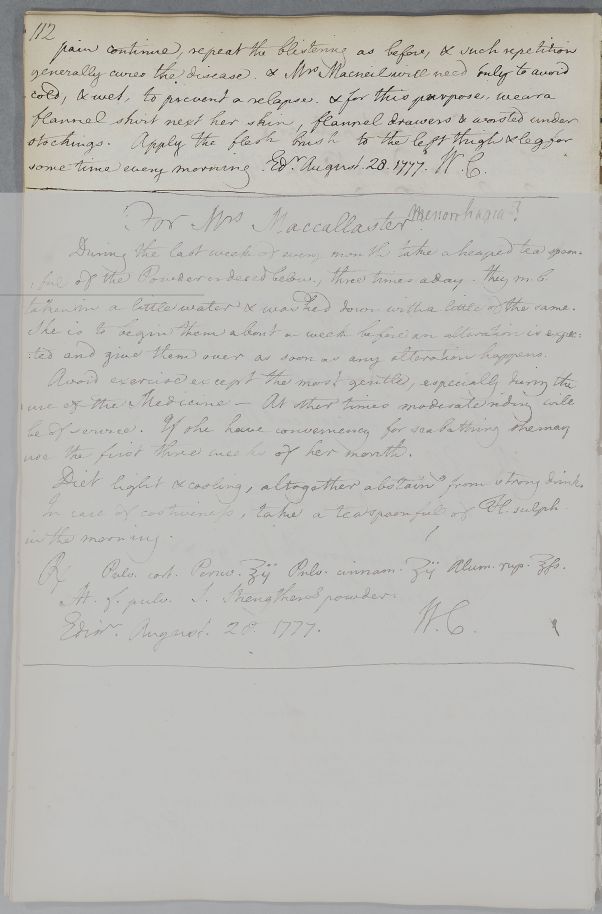 112
pain continue, repeat the blistering as before, & such repetition
generally cures the disease. & Mrs Macneil will need only to avoid
cold, & wet, to prevent a relapse. & for this purpose, wear a
flannel shirt next her skin, flannel drawers & worsted under
stockings. Apply the flesh brush to the left thigh & leg for
some time every morning. Edr. August. 28. 1777. W. C.
For Mrs Maccallaster Menorrhagia?
During the last week of every month take a heaped tea spoon-
:ful of the Powder ordered below, three times a day. they m. b.
taken in a little water & washed down with a little of the same.
She is to begin them about a week before an alteration is expec:
:ted and give them over as soon as any alteration happens.
Avoid exercise except the most gentle, especially during the
use of the Medicine - At other times moderate riding will
be of service. If she have conveniency for sea bathing she may
use the first three weeks of her month.
Diet light & cooling, altogether abstaing from strong drink.
In case of costiveness, take a teaspoonful of Fl. sulph.
in the morning.
Rx Pulv. cort. Peruv. ʒij Pulv. cinnam. ʒij Alum. rup. ʒſs.
M. f. pulv. S. Strengthens powder.
Edinr. August. 28 1777. W. C.